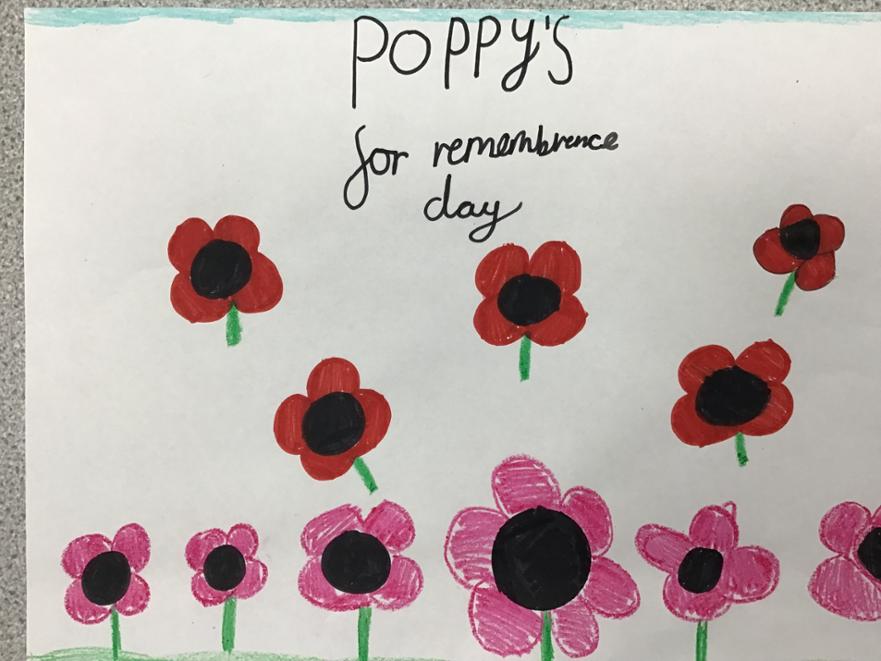 Poppy's
for remembrence
day